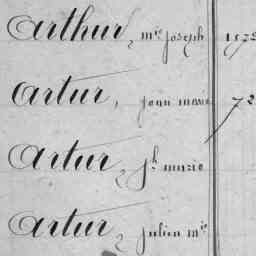 Arthur, mie joseph 1872
Artur, jean marie 72
Artur, jh marie
Artur, julien mie